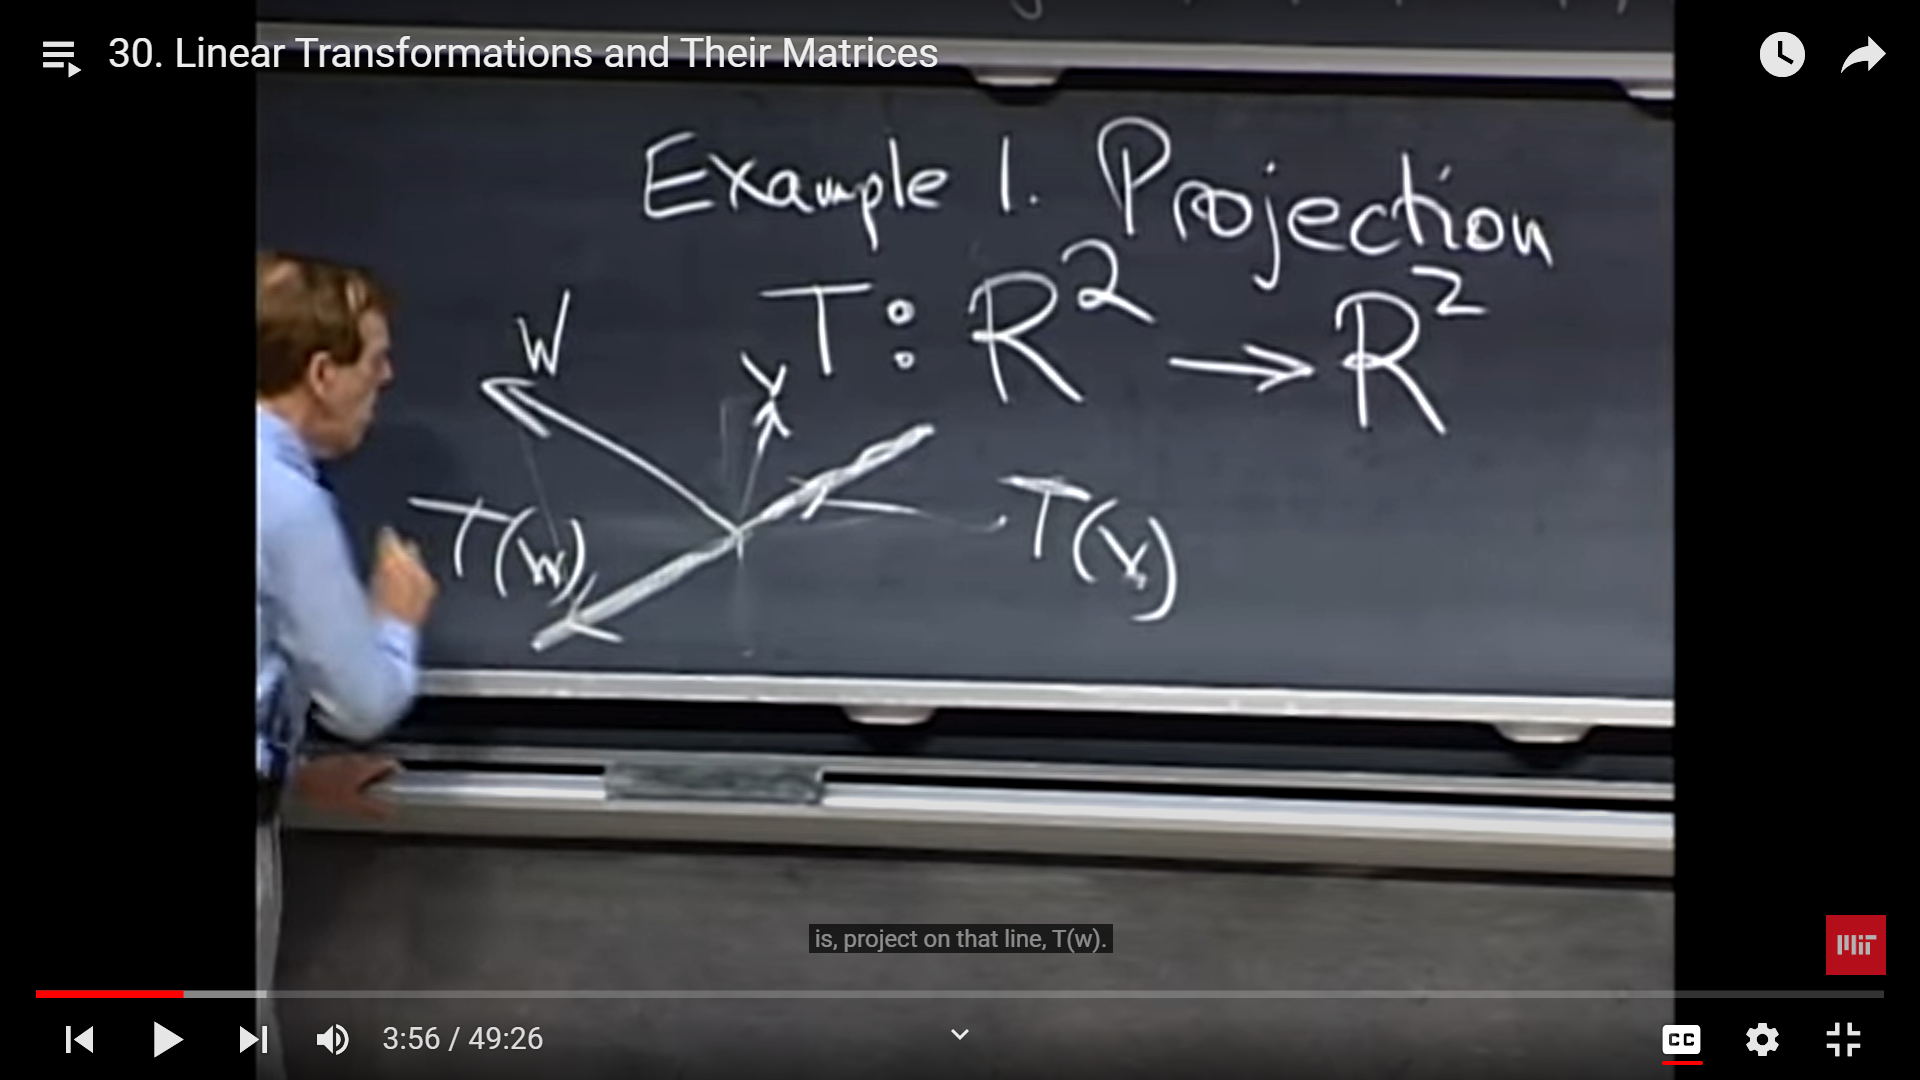 30. Linear Transformations and Their Matrices
Example 1. Projection
T: R² → R²
W
v
T(w)
T(v)
is, project on that line, T(w).
MiT
3:56 / 49:26
CC